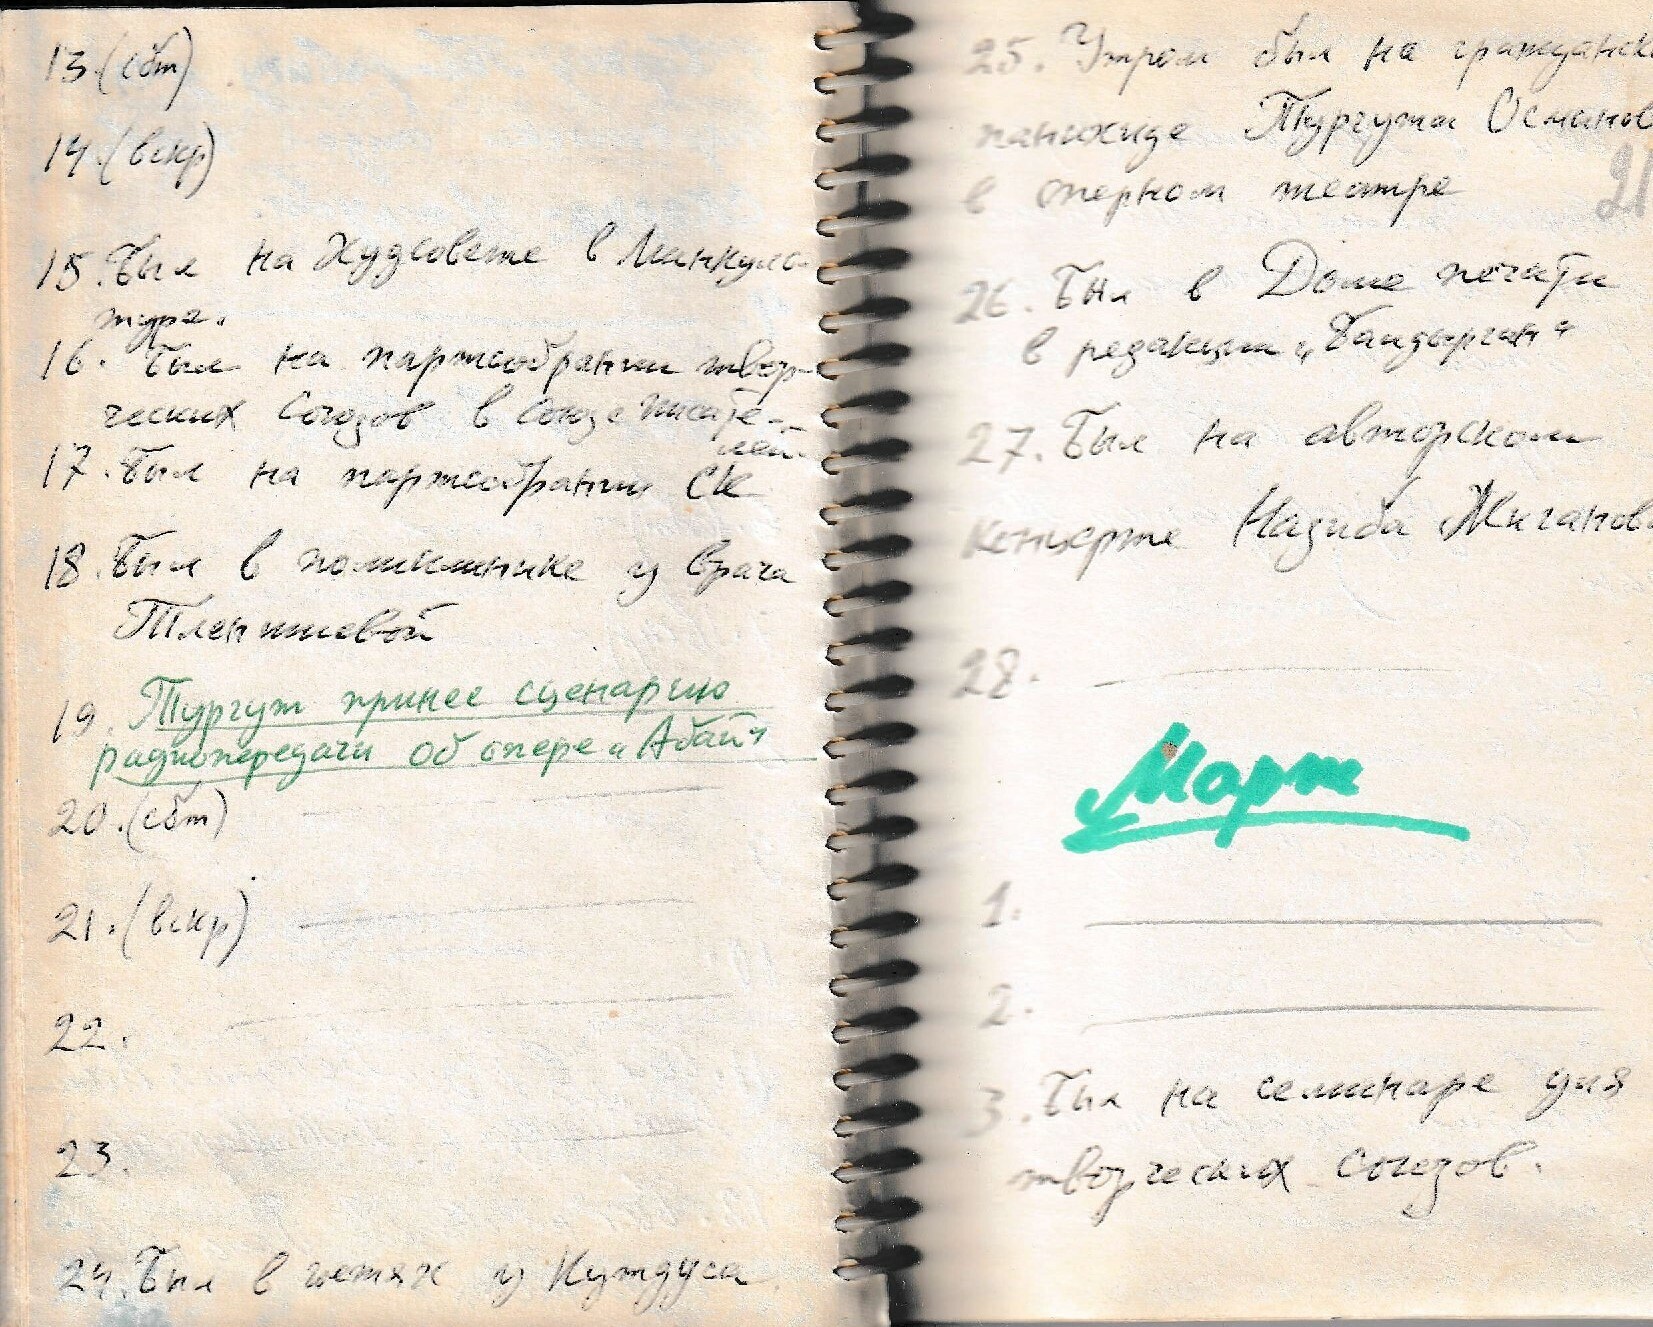 13.(сбт)
14.(вскр)
15. Был на Худсовете в Минкуль-
туре.
16. Был на партсобрании твор-
ческих союзов в Союзе писате-
лей.
17. Был на партсобрании СК
18. Был в поликлинике у врача
Тленшиевой
19. Тургут принес сценарию
радиопередачи об опере "Абай"
20.(сбт)
21.(вскр)
22.
23.
24. Был в гостях у Куддуса
25. Утром был на гражданск
панихиде Тургута Османов
в оперном театре
21
26. Был в Доме печати
в редакции "Балдырган"
27. Был на авторском
концерте Назиба Жиганов
28.
Март
1.
2.
3. Был на семинаре для
творческих союзов.